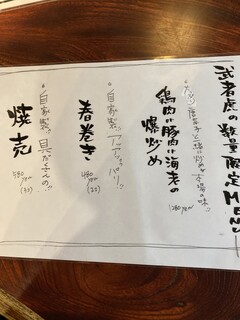 武者虎の数量限定MENU
唐辛子と一緒に炒めた本場の味!!
鶏肉or豚肉or海老の
爆炒め
780yen
自家製アツアツパリ!!
春巻き
480yen
(2コ)
自家製具だくさんの!!
焼売
580yen
(3コ)